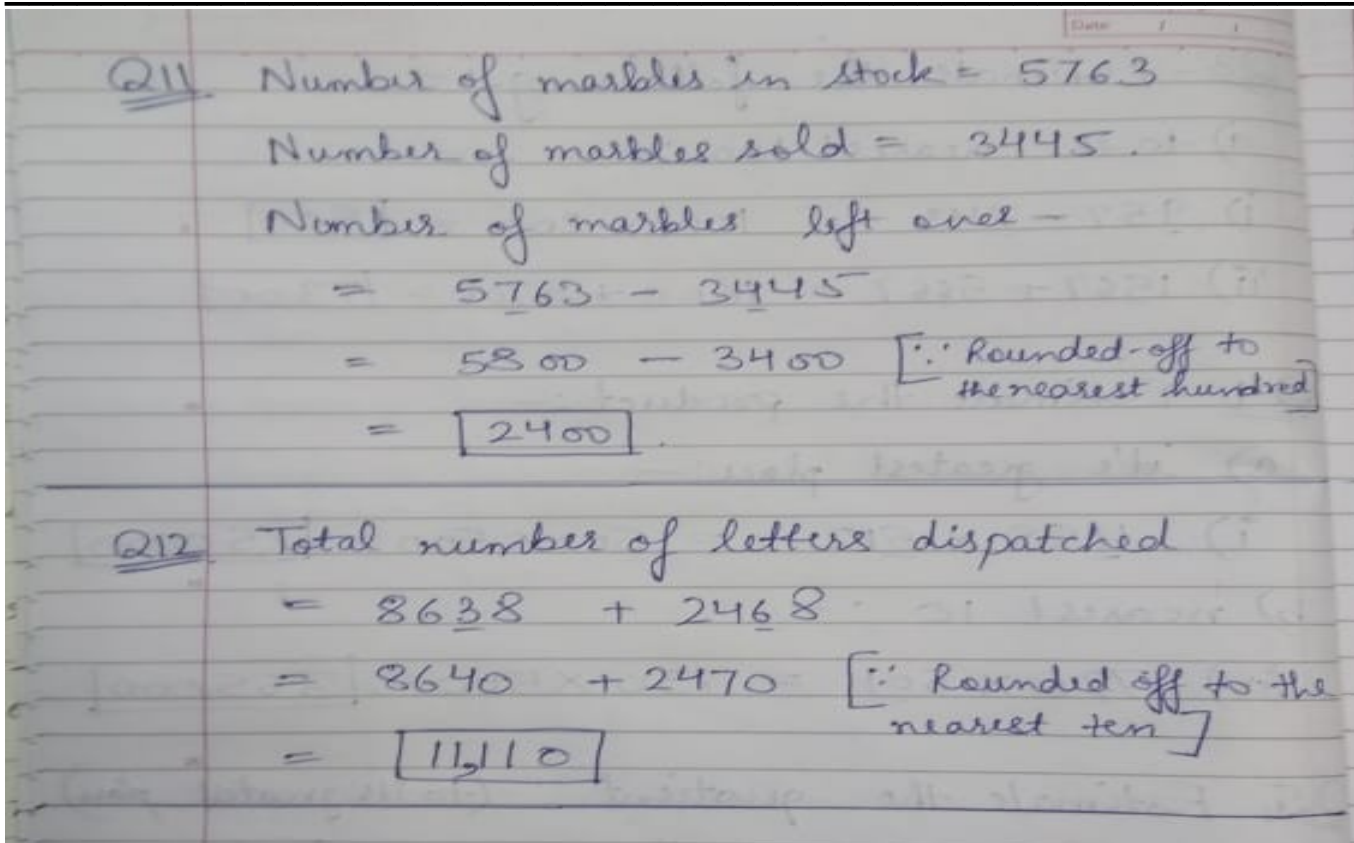 Date / /
Q11 Number of marbles in stock = 5763
Number of marbles sold = 3445.
Number of marbles left over -
= 5763 - 3445
= 5800 - 3400 [∵ Rounded-off to
the nearest hundred]
= 2400.
Q12 Total number of letters dispatched
= 8638 + 2468
= 8640 + 2470 [∵ Rounded off to the
nearest ten]
= 11,110